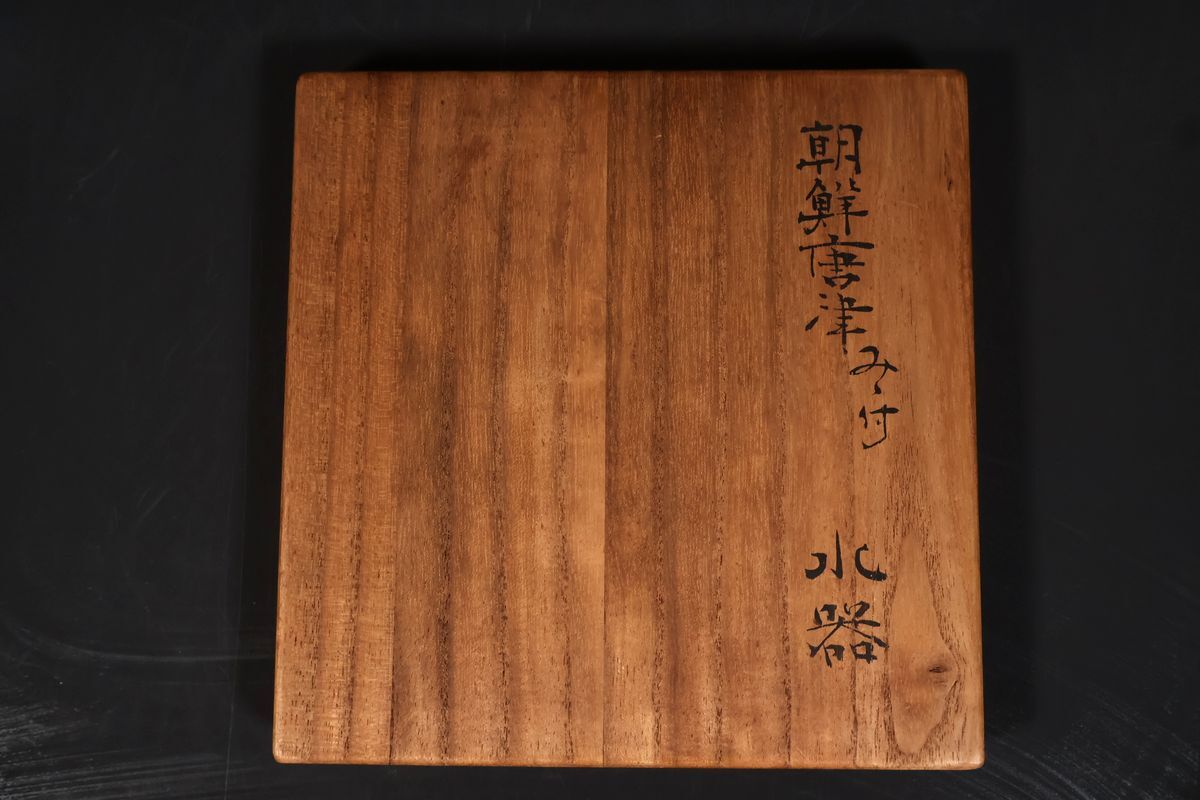 朝鮮唐津みゝ付
水器